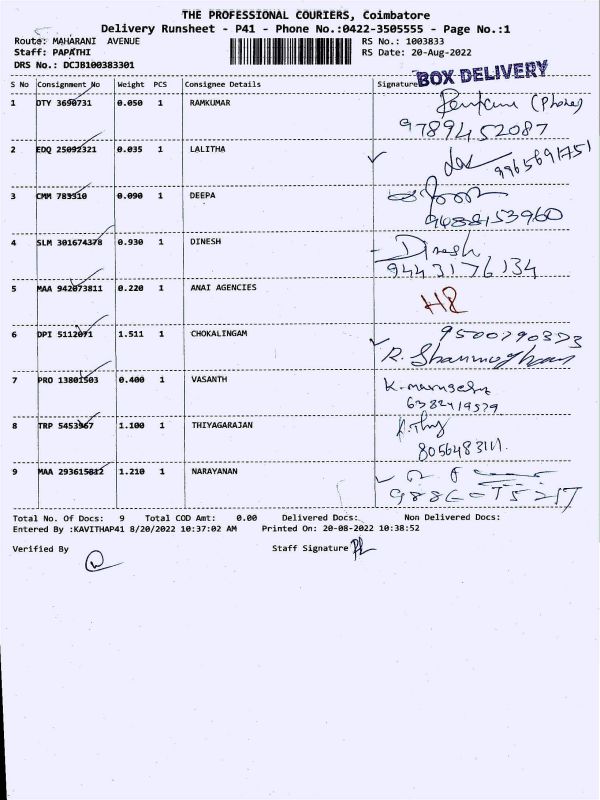 THE PROFESSIONAL COURIERS, Coimbatore
Delivery Runsheet - P41 - Phone No.:0422-3505555 - Page No.:1
Route: MAHARANI AVENUE RS No.: 1003833
Staff: PAPATHI RS Date: 20-Aug-2022
DRS No.: DCJB100383301
BOX DELIVERY
S No Consignment No Weight PCS Consignee Details Signature
1 DTY 3690731 0.050 1 RAMKUMAR (Phone)
9789452087
2 EDQ 25092321 0.035 1 LALITHA 9965691751
3 CMM 783310 0.090 1 DEEPA
9488153960
4 SLM 301674378 0.930 1 DINESH Dinesh
9443176134
5 MAA 942073811 0.220 1 ANAI AGENCIES H8
6 DPI 5112071 1.511 1 CHOKALINGAM 9500790373
R. Shanmugham
7 PRO 13801503 0.400 1 VASANTH
6382419579
8 TRP 5453967 1.100 1 THIYAGARAJAN
8056483111.
9 MAA 293615812 1.210 1 NARAYANAN
Total No. Of Docs: 9 Total COD Amt: 0.00 Delivered Docs: Non Delivered Docs:
Entered By :KAVITHAP41 8/20/2022 10:37:02 AM Printed On: 20-08-2022 10:38:52
Verified By Staff Signature